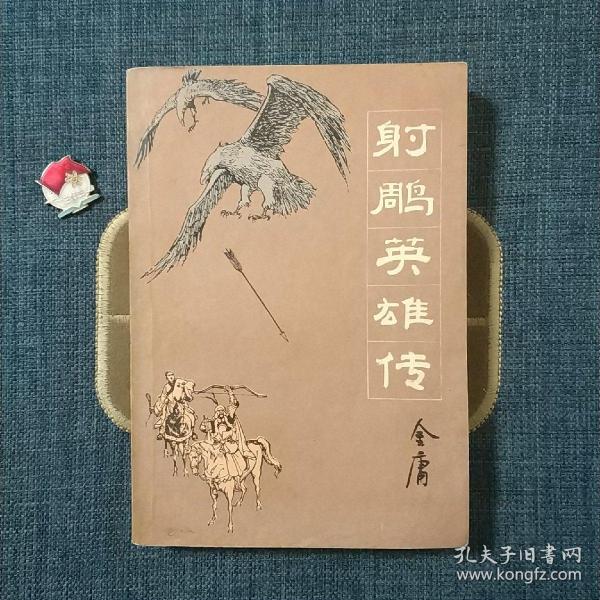 射鵰英雄传
金庸
孔夫子旧書网
www.kongfz.com